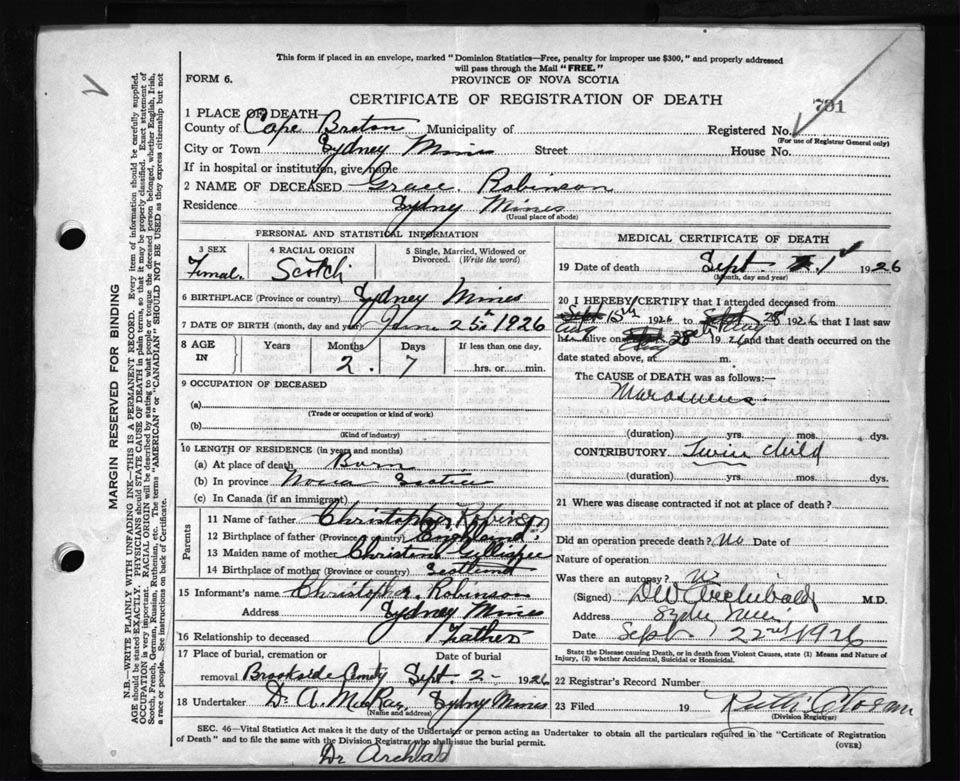 This form if placed in an envelope, marked "Dominion Statistics—Free, penalty for improper use $300," and properly addressed
will pass through the Mail "FREE."
FORM 6.
PROVINCE OF NOVA SCOTIA
CERTIFICATE OF REGISTRATION OF DEATH
791
1 PLACE OF DEATH
County of Cape Breton Municipality of Registered No.
(For use of Registrar General only)
City or Town Sydney Mines Street House No.
If in hospital or institution, give name
2 NAME OF DECEASED Grace Robinson
Residence Sydney Mines
(Usual place of abode)
PERSONAL AND STATISTICAL INFORMATION
3 SEX 4 RACIAL ORIGIN 5 Single, Married, Widowed or
Divorced. (Write the word)
Femal. Scotch
6 BIRTHPLACE (Province or country) Sydney Mines
7 DATE OF BIRTH (month, day and year) June 25th 1926
8 AGE IN Years Months Days If less than one day,
2. 7 hrs. or min.
9 OCCUPATION OF DECEASED
(a)
(Trade or occupation or kind of work)
(b)
(Kind of industry)
10 LENGTH OF RESIDENCE (in years and months)
(a) At place of death Born
(b) In province Nova Scotia
(c) In Canada (if an immigrant)
Parents
11 Name of father Christopher Robinson
12 Birthplace of father (Province or country) England
13 Maiden name of mother Christena Gillespie
14 Birthplace of mother (Province or country) Scotland
15 Informant's name Christopher Robinson
Address Sydney Mines
16 Relationship to deceased Father
17 Place of burial, cremation or Date of burial
removal Brookside Cemty Sept. 2- 1926
18 Undertaker D. A. McRae, Sydney Mines
(Name and address)
MEDICAL CERTIFICATE OF DEATH
19 Date of death Sept. 1 1926
(Month, day and year)
20 I HEREBY CERTIFY that I attended deceased from
Aug 15th 1926 to Aug 28 1926 that I last saw
her alive on Aug 28 1926 and that death occurred on the
date stated above, at m.
The CAUSE OF DEATH was as follows:—
Marasmus.
(duration) yrs. mos. dys.
CONTRIBUTORY Twin child
(duration) yrs. mos. dys.
21 Where was disease contracted if not at place of death?
Did an operation precede death? No Date of
Nature of operation
Was there an autopsy? No
(Signed) DW Archibald M.D.
Address Sydney Mines
Date Sept 22nd 1926
State the Disease causing Death, or in death from Violent Causes, state (1) Means and Nature of
Injury, (2) whether Accidental, Suicidal or Homicidal.
22 Registrar's Record Number
23 Filed 19 Ruth
(Division Registrar)
SEC. 46—Vital Statistics Act makes it the duty of the Undertaker or person acting as Undertaker to obtain all the particulars required in the "Certificate of Registration
of Death" and to file the same with the Division Registrar who shall issue the burial permit.
(OVER)
Dr Archibald
MARGIN RESERVED FOR BINDING
N.B.—WRITE PLAINLY WITH UNFADING INK—THIS IS A PERMANENT RECORD. Every item of information should be carefully supplied.
AGE should be stated EXACTLY. PHYSICIANS should STATE CAUSE OF DEATH in plain terms, so that it may be properly classified. Exact statement of
OCCUPATION is very important. RACIAL ORIGIN will be described by stating to what people or tongue the deceased person belonged, whether English, Irish,
Scotch, French, German, Russian, Ruthenian, etc. The terms "AMERICAN" or "CANADIAN" SHOULD NOT BE USED as they express citizenship but not
a race or people. See instructions on back of Certificate.